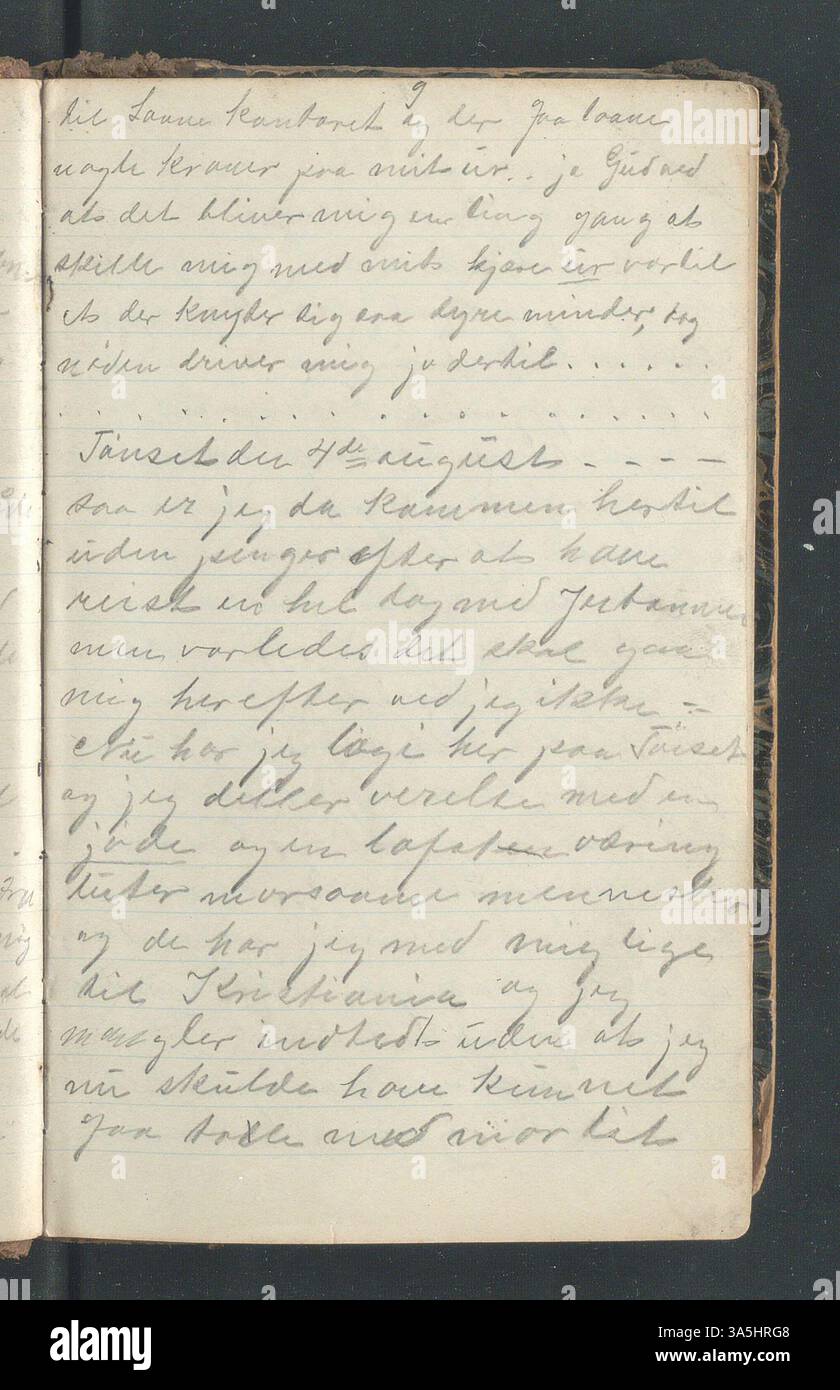 9
til Laane kontoret og der faa laane
nogle kroner paa mit ur.. ja Gud ved
at det bliver mig en tung gang at
skille mig med mit kjære ur vortil
et der knyter sig saa dyre minder, dog
nøden driver mig jo dertil......
Tønset den 4de august - - - -
saa er jeg da kommen hertil
uden penger efter at have
reist en hel dag med Jærbannen
men vorledes det skal gaa
mig herefter ved jeg ikke -
Nu har jeg logi her paa Tønset
og jeg deller verelse med en
jøde og en lofot væring
luter morsomme mennesker
og de har jeg med mig lige
til Kristiania og jeg
mangler indtedt uden at jeg
nu skulde have kunnet
faa talle med mor lit
alamy
Image ID: 3A5HRG8
www.alamy.com